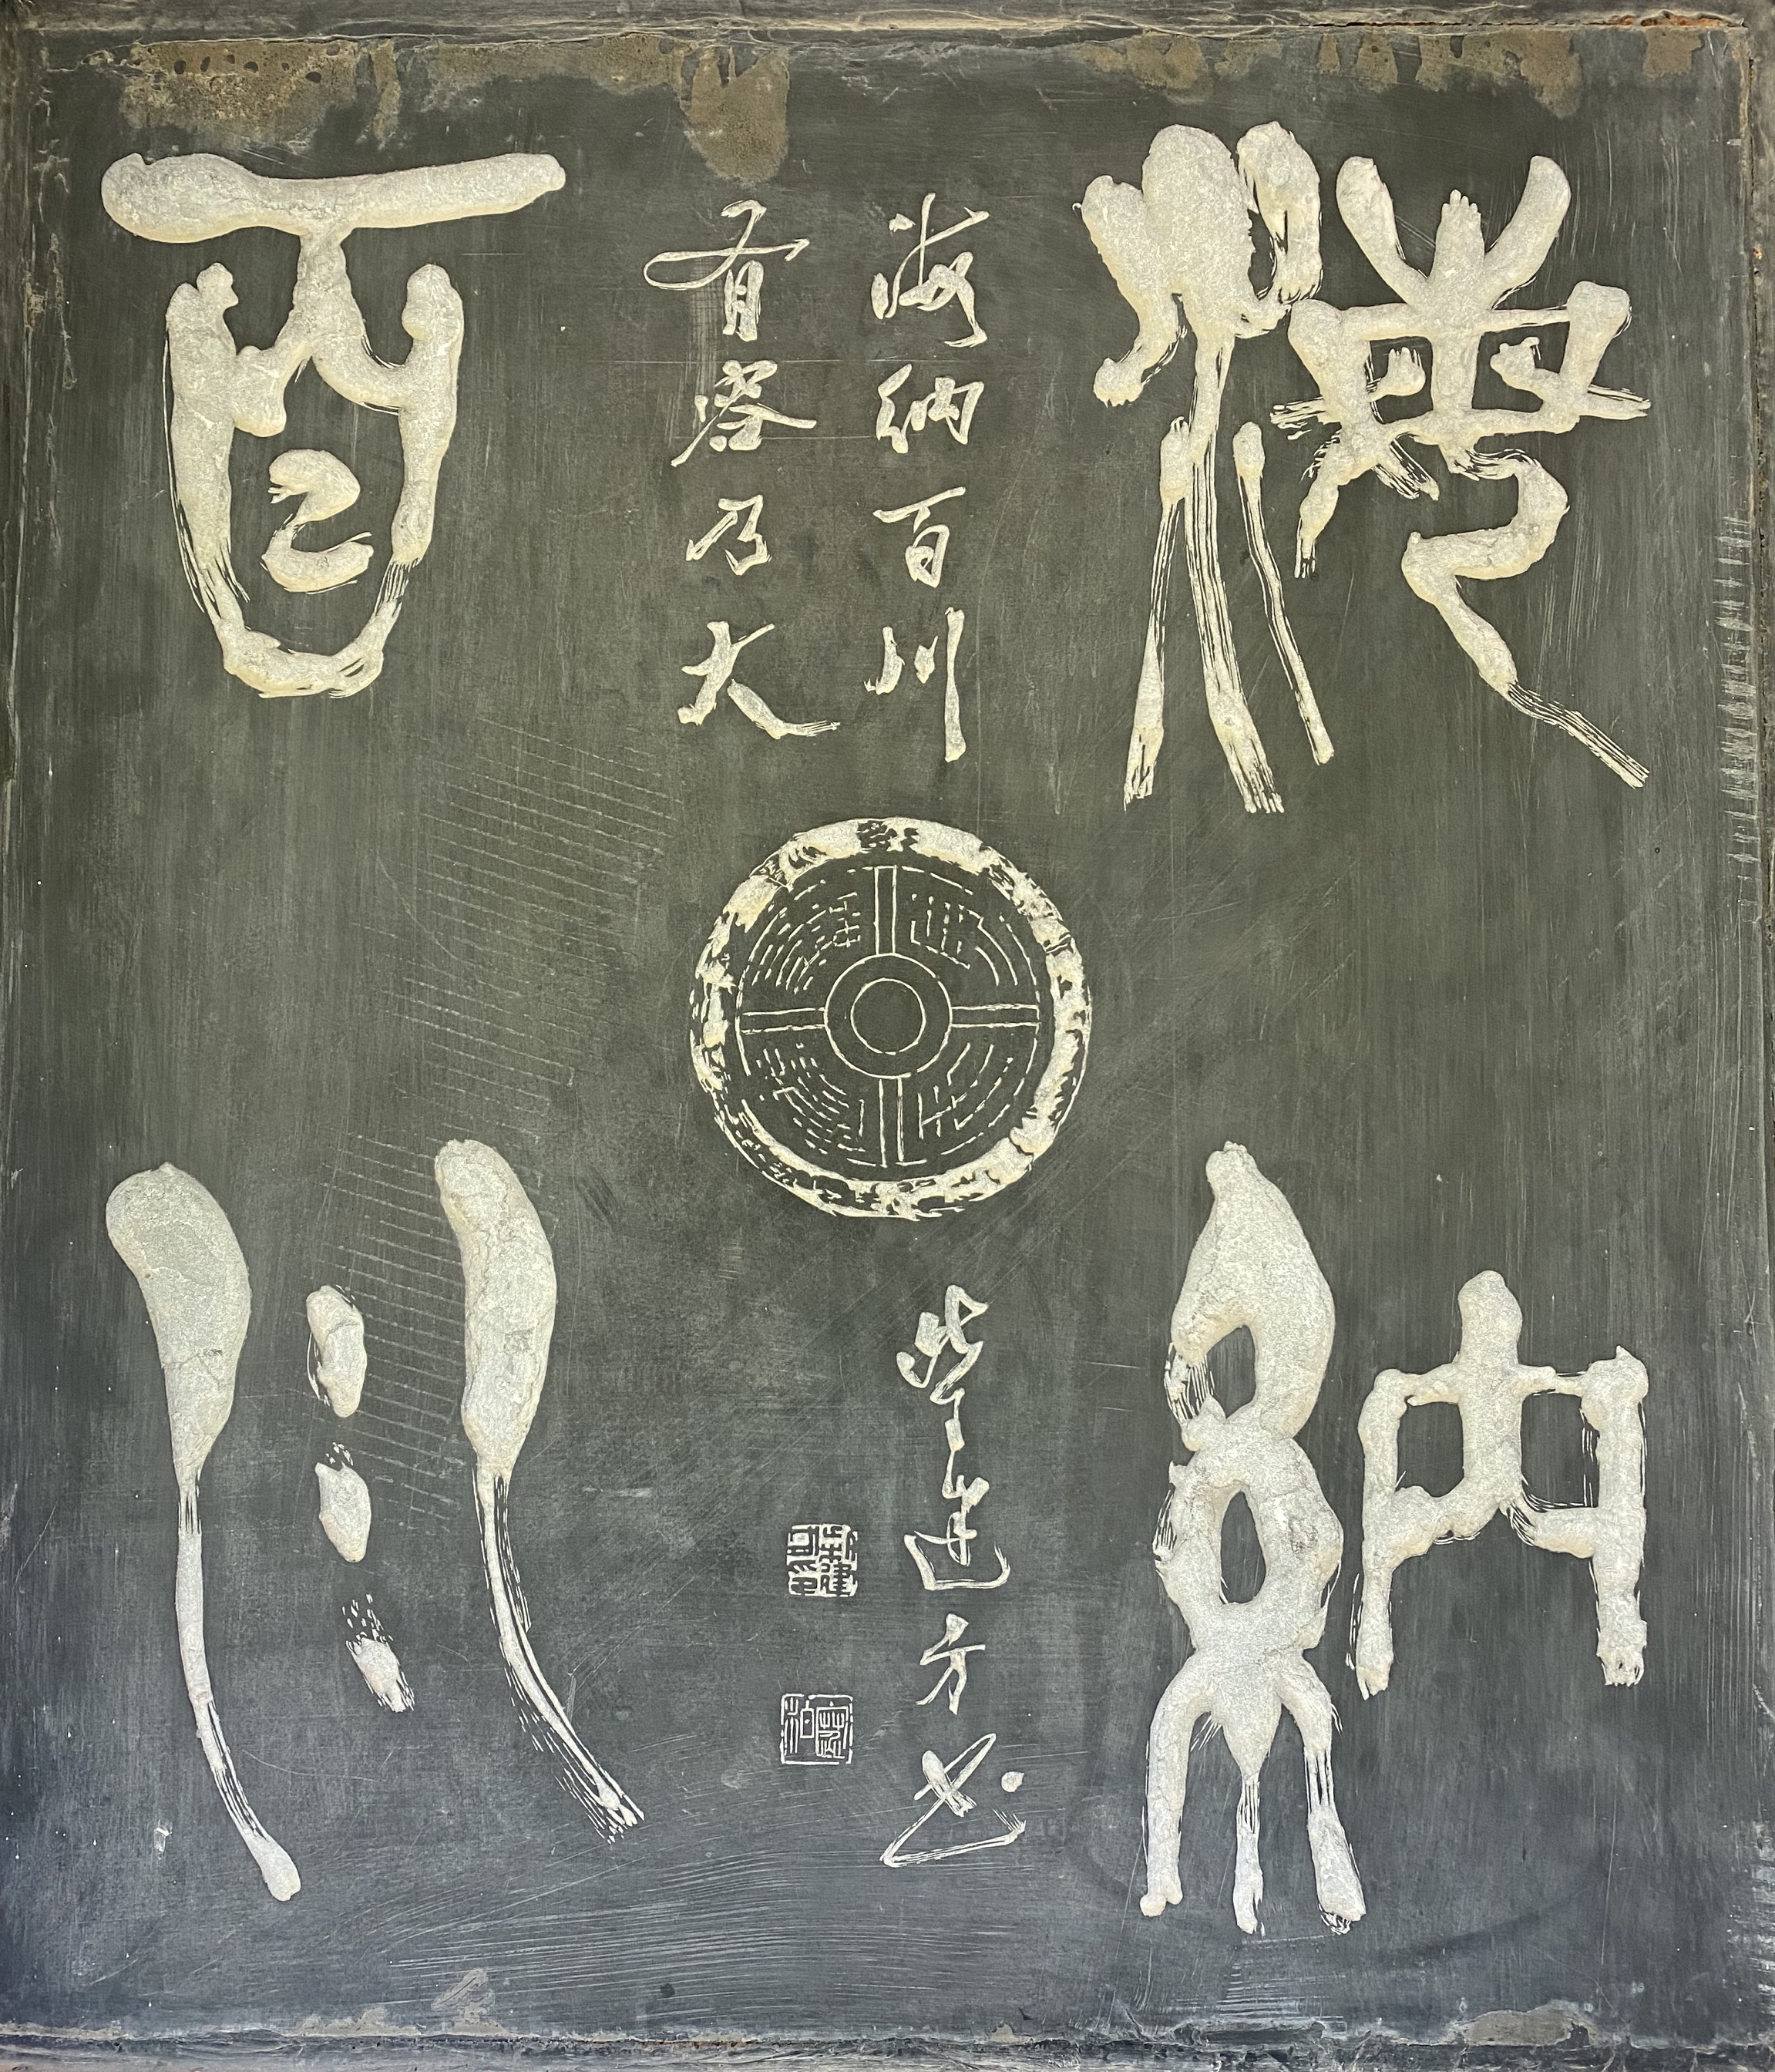 海納
百川
海纳百川
有容乃大
建方书